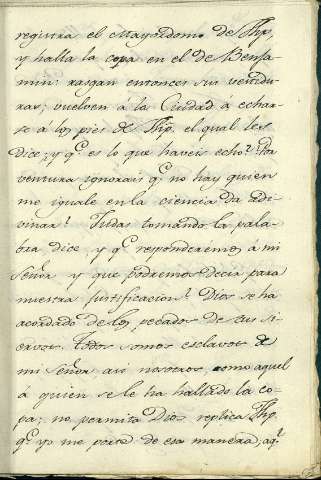 registra el Mayordomo de Jhp,
y halla la copa en el de Benja
min: rasgan entonces sus vestidu
ras; vuelven á la Ciudad á echar-
se á los pies de Jhp, el qual les
dice; y q.e es lo que haveis echo? Por
ventura ignorais q.e no hay quien
me iguale en la ciencia de adi
vinar? Judas tomando la pala
bra dice y q.e reponderémos á mi
Señor y que podremos decir para
nuestra justificacion? Dios se ha
acordado de los pecados de sus si-
ervos. todos somos esclavos de
mi Señor asi nosotros, como aquel
á quien se le ha hallado la co-
pa; no permita Dios replica Jhp,
q.e yo me porte de esa manera, aq.l